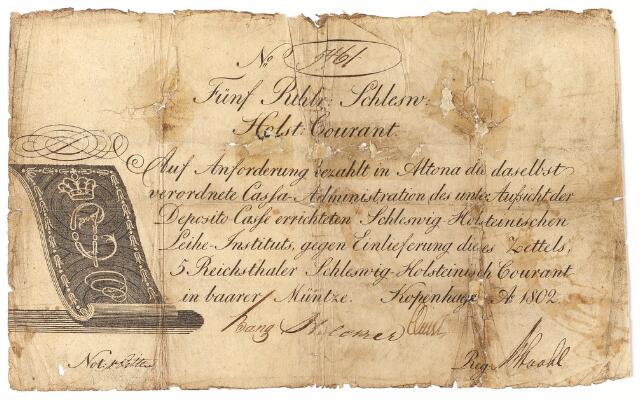 No 5461
Fünf Rthlr: Schlesw:
Holst: Courant.
Auf Anforderung bezahlt in Altona die daselbst
verordnete Cassa-Administration des unter Aufsicht der
Deposito-Casse errichteten Schleswig-Holsteinischen
Leihe-Instituts, gegen Einlieferung dieses Zettels,
5 Reichsthaler Schleswig-Holsteinisch Courant
in baarer Müntze. Kopenhagen Ao 1802
Not:
Reg: